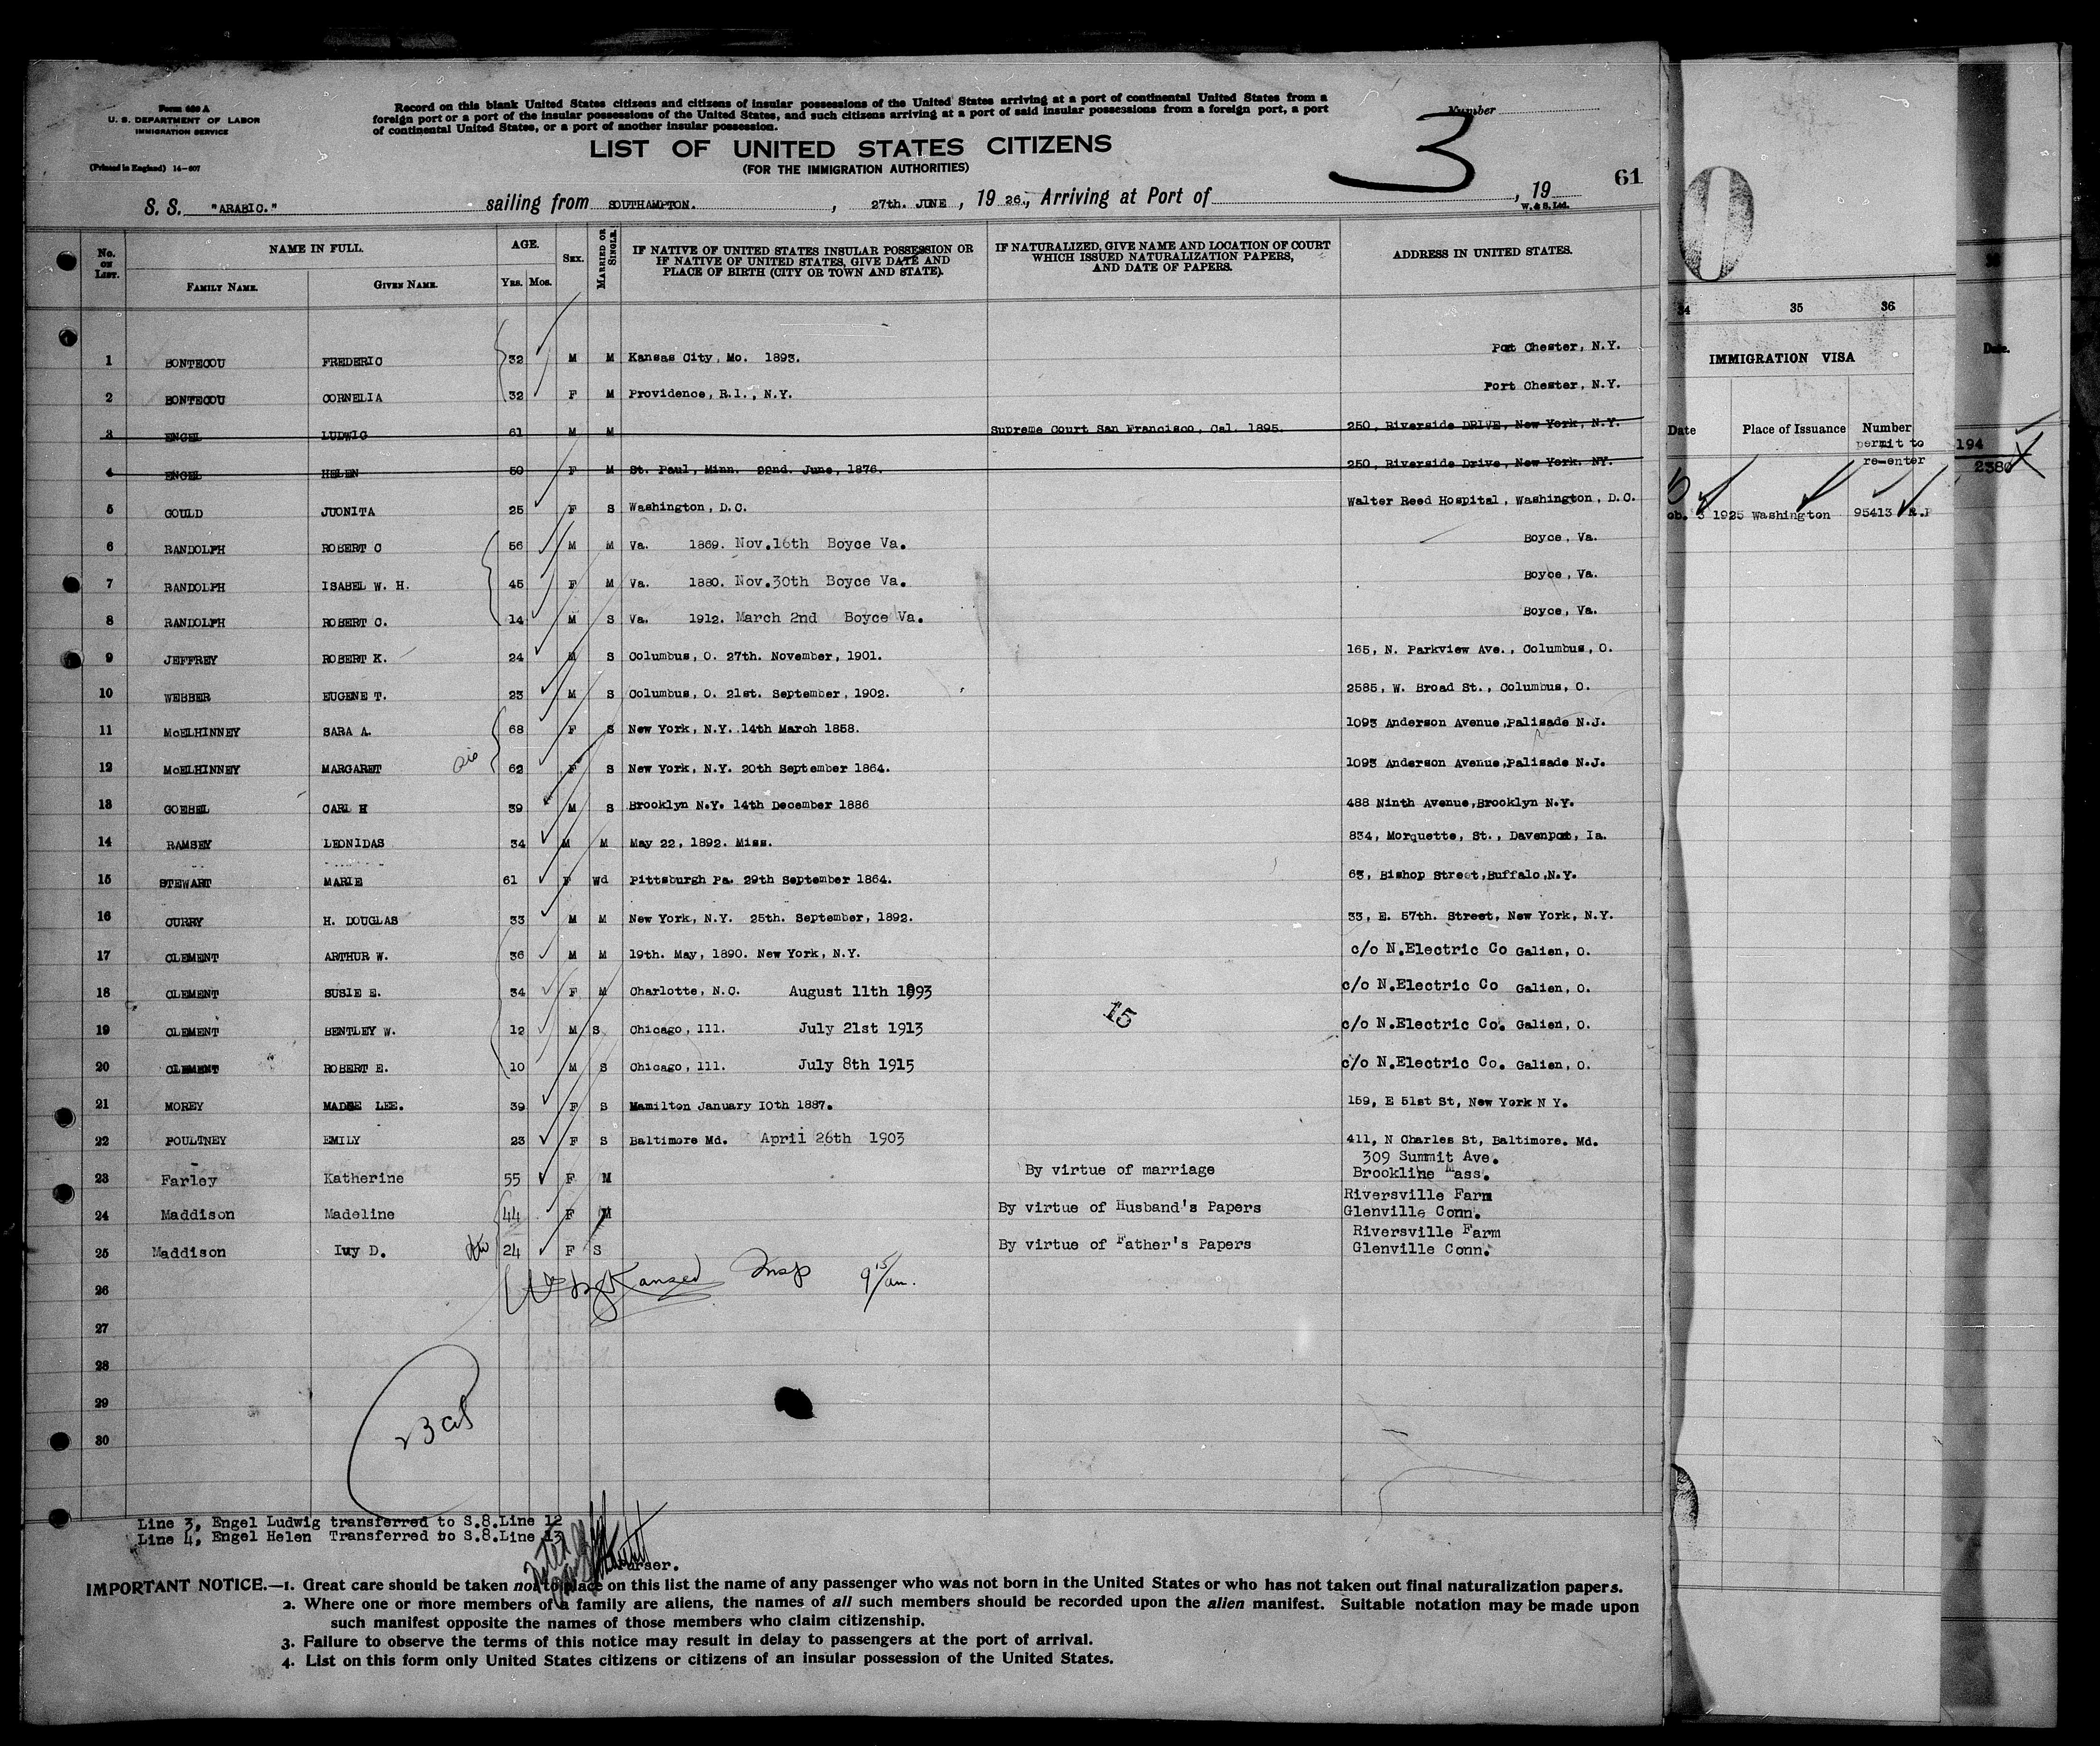 Form 630 A
U. S. DEPARTMENT OF LABOR
IMMIGRATION SERVICE
(Printed in England) 14-607
Record on this blank United States citizens and citizens of insular possessions of the United States arriving at a port of continental United States from a
foreign port or a port of the insular possessions of the United States, and such citizens arriving at a port of said insular possessions from a foreign port, a port
of continental United States, or a port of another insular possession.
Number
3
61
LIST OF UNITED STATES CITIZENS
(FOR THE IMMIGRATION AUTHORITIES)
S. S. "ARABIC." sailing from SOUTHAMPTON. , 27th. JUNE , 19 26., Arriving at Port of , 19
W. & S. Ltd.
No. ON LIST. NAME IN FULL. AGE. SEX. MARRIED OR SINGLE. IF NATIVE OF UNITED STATES INSULAR POSSESSION OR IF NATIVE OF UNITED STATES, GIVE DATE AND PLACE OF BIRTH (CITY OR TOWN AND STATE). IF NATURALIZED, GIVE NAME AND LOCATION OF COURT WHICH ISSUED NATURALIZATION PAPERS, AND DATE OF PAPERS. ADDRESS IN UNITED STATES.
FAMILY NAME. GIVEN NAME. YRS. MOS.
1 BONTECOU FREDERIC 32 M M Kansas City, Mo. 1893. Port Chester, N.Y.
2 BONTECOU CORNELIA 32 F M Providence, R.I., N.Y. Port Chester, N.Y.
3 ENGEL LUDWIG 61 M M Supreme Court San Francisco, Cal. 1895. 250, Riverside DRIVE, New York, N.Y.
4 ENGEL HELEN 50 F M St. Paul, Minn. 22nd. June, 1876. 250, Riverside Drive, New York. NY.
5 GOULD JUONITA 25 F S Washington, D.C. Walter Reed Hospital, Washington, D.C.
6 RANDOLPH ROBERT C 56 M M Va. 1869. Nov.16th Boyce Va. Boyce, Va.
7 RANDOLPH ISABEL W. H. 45 F M Va. 1880. Nov.30th Boyce Va. Boyce, Va.
8 RANDOLPH ROBERT C. 14 M S Va. 1912. March 2nd Boyce Va. Boyce, Va.
9 JEFFREY ROBERT K. 24 M S Columbus, O. 27th. November, 1901. 165, N. Parkview Ave., Columbus, O.
10 WEBBER EUGENE T. 23 M S Columbus, O. 21st. September, 1902. 2585, W. Broad St., Columbus, O.
11 McELHINNEY SARA A. 68 F S New York, N.Y. 14th March 1858. 1093 Anderson Avenue,Palisade N.J.
12 McELHINNEY MARGARET sis 62 F S New York, N.Y. 20th September 1864. 1093 Anderson Avenue,Palisade N.J.
13 GOEBEL CARL H 39 M S Brooklyn N.Y. 14th December 1886 488 Ninth Avenue,Brooklyn N.Y.
14 RAMSEY LEONIDAS 34 M M May 22, 1892. Miss. 834, Morquette, St., Davenport, Ia.
15 STEWART MARIE 61 F Wd Pittsburgh Pa. 29th September 1864. 63, Bishop Street,Buffalo,N.Y.
16 CURRY H. DOUGLAS 33 M M New York, N.Y. 25th. September, 1892. 33, E. 57th. Street, New York, N.Y.
17 CLEMENT ARTHUR W. 36 M M 19th. May, 1890. New York, N.Y. c/o N.Electric Co Galien, O.
18 CLEMENT SUSIE E. 34 F M Charlotte, N.C. August 11th 1893 c/o N.Electric Co Galien, O.
15
19 CLEMENT BENTLEY W. 12 M S Chicago, Ill. July 21st 1913 c/o N.Electric Co. Galien, O.
20 CLEMENT ROBERT E. 10 M S Chicago, Ill. July 8th 1915 c/o N.Electric Co. Galien, O.
21 MOREY MADGE LEE. 39 F S Hamilton January 10th 1887. 159, E 51st St, New York N Y.
22 POULTNEY EMILY 23 F S Baltimore Md. April 26th 1903 411, N Charles St, Baltimore. Md.
23 Farley Katherine 55 F M By virtue of marriage 309 Summit Ave. Brookline Mass.
24 Maddison Madeline 44 F M By virtue of Husband's Papers Riversville Farm Glenville Conn.
25 Maddison Ivy D. 24 F S By virtue of Father's Papers Riversville Farm Glenville Conn.
26
Insp 9 15/am.
27
28
29
30
Line 3, Engel Ludwig transferred to S.8.Line 12
Line 4, Engel Helen Transferred to S.8.Line 13
Purser.
IMPORTANT NOTICE.—1. Great care should be taken not to place on this list the name of any passenger who was not born in the United States or who has not taken out final naturalization papers.
2. Where one or more members of a family are aliens, the names of all such members should be recorded upon the alien manifest. Suitable notation may be made upon
such manifest opposite the names of those members who claim citizenship.
3. Failure to observe the terms of this notice may result in delay to passengers at the port of arrival.
4. List on this form only United States citizens or citizens of an insular possession of the United States.
34 35 36
IMMIGRATION VISA
Date Place of Issuance Number
permit to
re-enter
3 1925 Washington 95413
Date.
194
2380